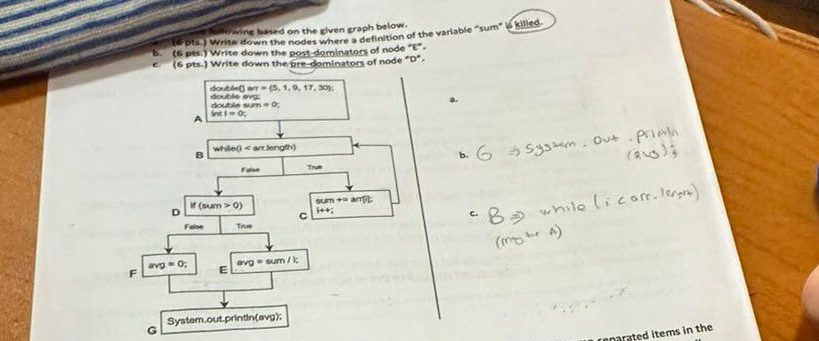 following based on the given graph below.
(6 pts.) Write down the nodes where a definition of the variable "sum" is killed.
b. (6 pts.) Write down the post-dominators of node "E".
c. (6 pts.) Write down the pre-dominators of node "D".
double[] arr = {5, 1, 9, 17, 30};
double avg;
double sum = 0;
int i = 0;
A
while(i < arr.length)
B
False
True
if (sum > 0)
D
sum += arr[i];
i++;
C
False
True
avg = 0;
F
avg = sum / i;
E
System.out.println(avg);
G
a.
b. G ⇒ System.out.println
(avg);
c. B ⇒ while (i < arr.length)
(maybe A)
separated items in the